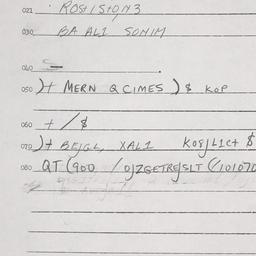 021 ROSTISTON3
030 BA ALI SONIM
040
050 )+ MERN Q CIMES ) $ KOP
060 + / $
070 )+ BEJGL, XALI KOSJLIC+ $
080 QT (900 / OJZGETREJSLT (/10107C